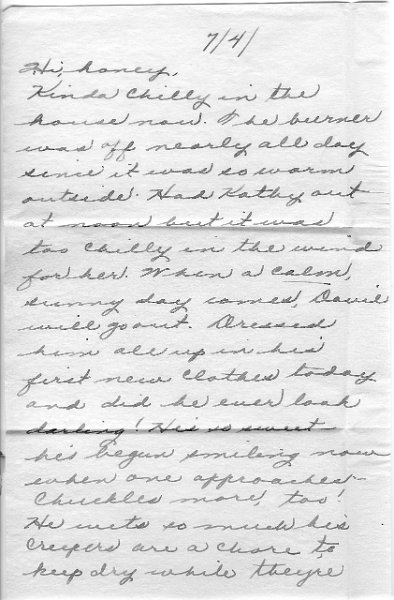 7/4/
Hi, honey,
Kinda chilly in the
house now. The burner
was off nearly all day
since it was so warm
outside. Had Kathy out
at noon but it was
too chilly in the wind
for her. When a calm,
sunny day comes, David
will go out. Dressed
him all up in his
first new clothes today
and did he ever look
darling! He's so sweet
he's begun smiling now
when one approaches-
Chuckles more, too!
He wets so much his
creepers are a chore to
keep dry while they're